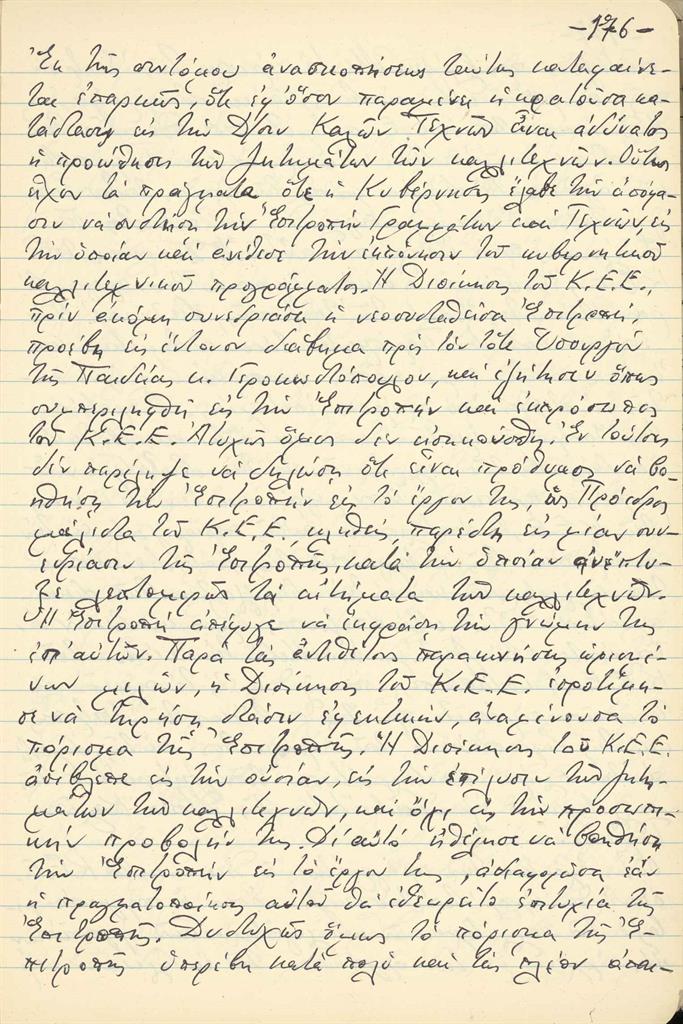 -176-
Ἐκ τῆς συντόμου ἀνασκοπήσεως ταύτης καταφαίνε-
ται ἐπαρκῶς, ὅτι ἐφ' ὅσον παραμένει ἡ κρατοῦσα κα-
τάστασις εἰς τὴν Δ/σιν Καλῶν Τεχνῶν εἶναι ἀδύνατος
ἡ προώθησις τῶν ζητημάτων τῶν καλλιτεχνῶν. Οὕτως
εἶχον τὰ πράγματα ὅτε ἡ Κυβέρνησις ἔλαβε τὴν ἀπόφα-
σιν νὰ συστήσῃ τὴν Ἐπιτροπὴν Γραμμάτων καὶ Τεχνῶν, εἰς
τὴν ὁποίαν καὶ ἀνέθεσε τὴν ἐκπόνησιν τοῦ κυβερνητικοῦ
καλλιτεχνικοῦ προγράμματος. Ἡ Διοίκησις τοῦ Κ.Ε.Ε.,
πρὶν ἀκόμη συνεδριάσῃ ἡ νεοσυσταθεῖσα Ἐπιτροπή,
προέβη εἰς ἔντονον διάβημα πρὸς τὸν τότε Ὑπουργὸν
τῆς Παιδείας κ. Γεροκωστόπουλον, καὶ ἐζήτησεν ὅπως
συμπεριληφθῇ εἰς τὴν Ἐπιτροπὴν καὶ ἐκπρόσωπος
τοῦ Κ.Ε.Ε. Ἀτυχῶς ὅμως δὲν εἰσηκούσθη. Ἐν τούτοις
δὲν παρέλειψε νὰ δηλώσῃ ὅτι εἶναι πρόθυμος νὰ βο-
ηθήσῃ τὴν Ἐπιτροπὴν εἰς τὸ ἔργον της, ὡς Πρόεδρος
μάλιστα τοῦ Κ.Ε.Ε., κληθείς, παρέστη εἰς μίαν συν-
εδρίασιν τῆς Ἐπιτροπῆς, κατὰ τὴν ὁποίαν ἀνέπτυ-
ξε λεπτομερῶς τὰ αἰτήματα τῶν καλλιτεχνῶν.
Ἡ Ἐπιτροπὴ ἀπέφυγε νὰ ἐκφράσῃ τὴν γνώμην της
ἐπ' αὐτῶν. Παρὰ τὰς ἀντιθέτους παρακινήσεις ὡρισμέ-
νων μελῶν, ἡ Διοίκησις τοῦ Κ.Ε.Ε. ἐπροτίμη-
σε νὰ τηρήσῃ στάσιν ἐφεκτικήν, ἀναμένουσα τὸ
πόρισμα τῆς Ἐπιτροπῆς. Ἡ Διοίκησις τοῦ Κ.Ε.Ε.
ἀπέβλεπε εἰς τὴν οὐσίαν, εἰς τὴν ἐπίλυσιν τῶν ζητη-
μάτων τῶν καλλιτεχνῶν, καὶ ὄχι εἰς τὴν προσωπι-
κήν προβολήν της. Δι' αὐτὸ ἠθέλησε νὰ βοηθήσῃ
τὴν Ἐπιτροπὴν εἰς τὸ ἔργον της, ἀδιαφοροῦσα ἐὰν
ἡ πραγματοποίησις αὐτοῦ θὰ ἐθεωρεῖτο ἐπιτυχία τῆς
Ἐπιτροπῆς. Δυστυχῶς ὅμως τὸ πόρισμα τῆς Ἐ-
πιτροπῆς ὑπερέβη κατὰ πολὺ καὶ τὰς πλέον ἀπαι-